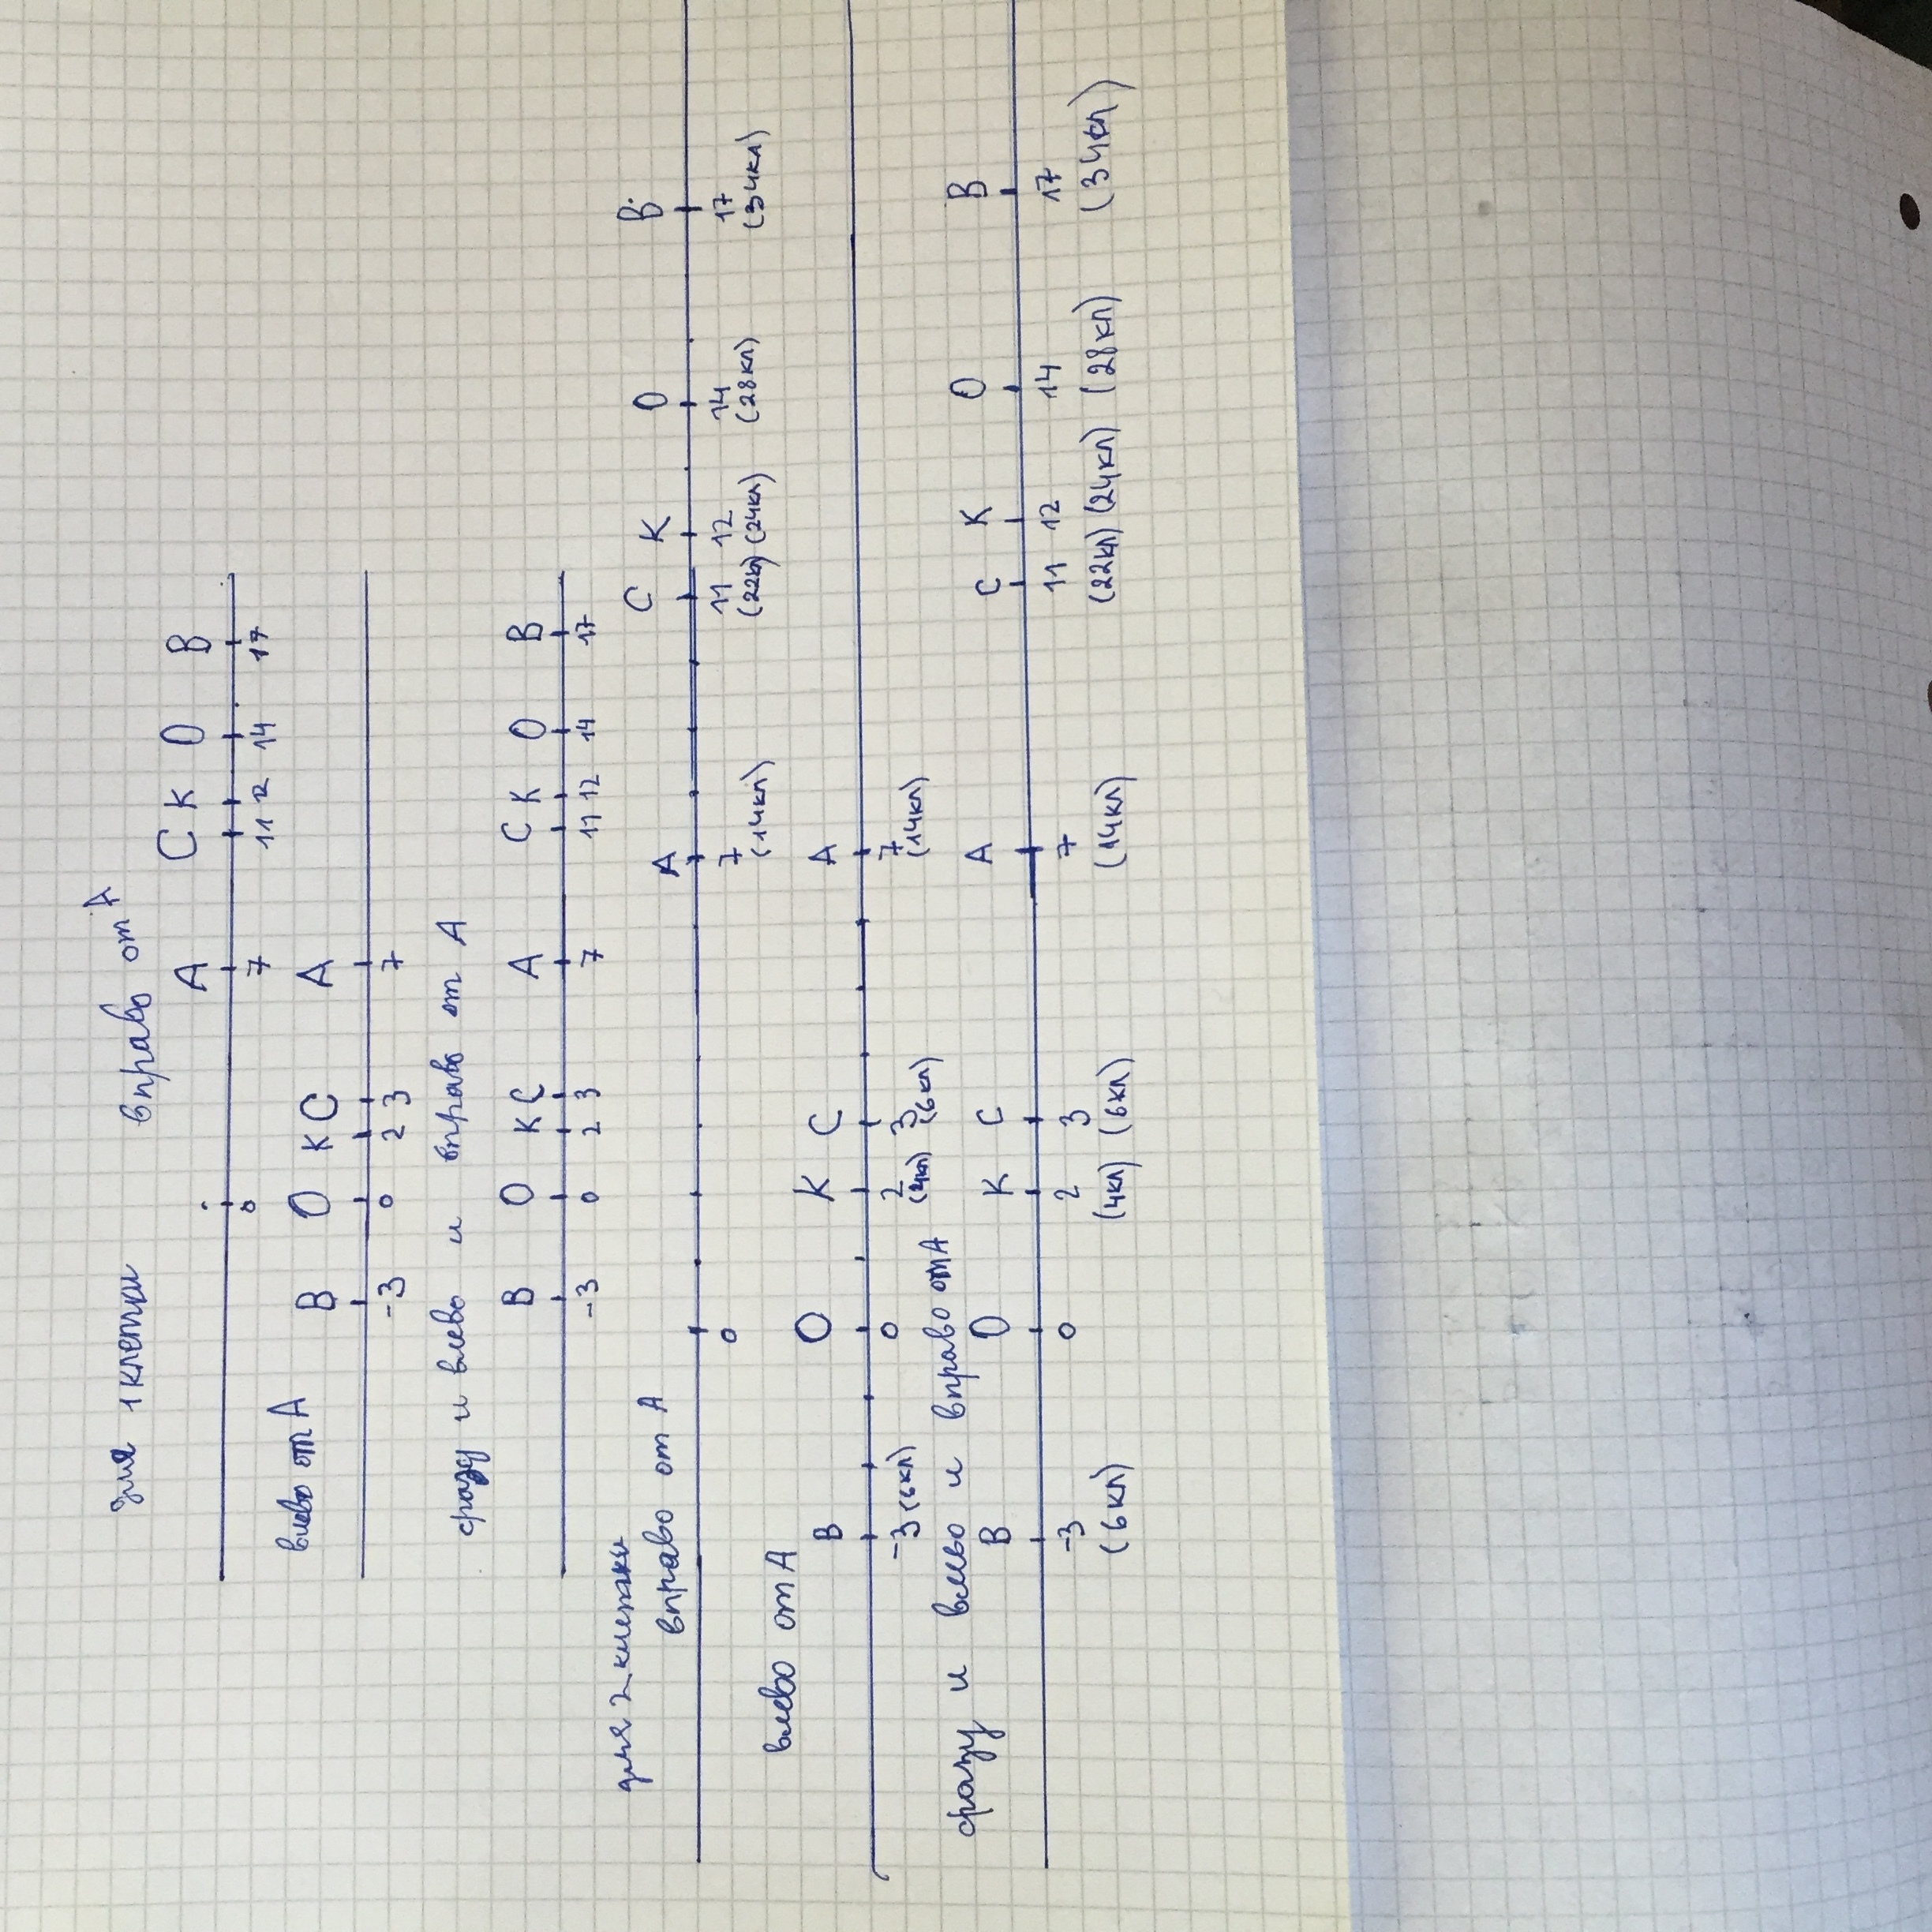 для 1 клетки вправо от А
А С К О В
0 7 11 12 14 17
влево от А
В О К С А
-3 0 2 3 7
сразу и влево и вправо от А
В О К С А С К О В
-3 0 2 3 7 11 12 14 17
для 2 клетки
вправо от А
А С К О В
0 7 11 12 14 17
(14кл) (22кл) (24кл) (28кл) (34кл)
влево от А
В О К С А
-3 (6кл) 0 2 3 7
(4кл) (6кл) (14кл)
сразу и влево и вправо от А
В О К С А С К О В
-3 0 2 3 7 11 12 14 17
(6кл) (4кл) (6кл) (14кл) (22кл) (24кл) (28кл) (34кл)